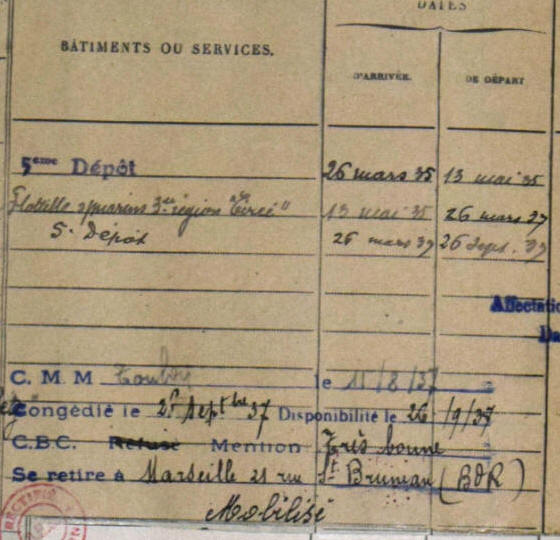 DATES
BÂTIMENTS OU SERVICES.
D'ARRIVÉE. DE DÉPART
5ème Dépôt 26 mars 35 13 mai 35
Flottille s/marins 3e région "Circé" 13 mai 35 26 mars 37
5e Dépôt 26 mars 37 26 Sept. 37
Affectatio
Da
C. M. M Toulon le 11/8/37
Congédié le Septbre 37 Disponibilité le 26/9/37
C.B.C. Refusé Mention Très bonne
Se retire à Marseille 21 rue St (BDR)
Mobilisé
RECTIFIÉ